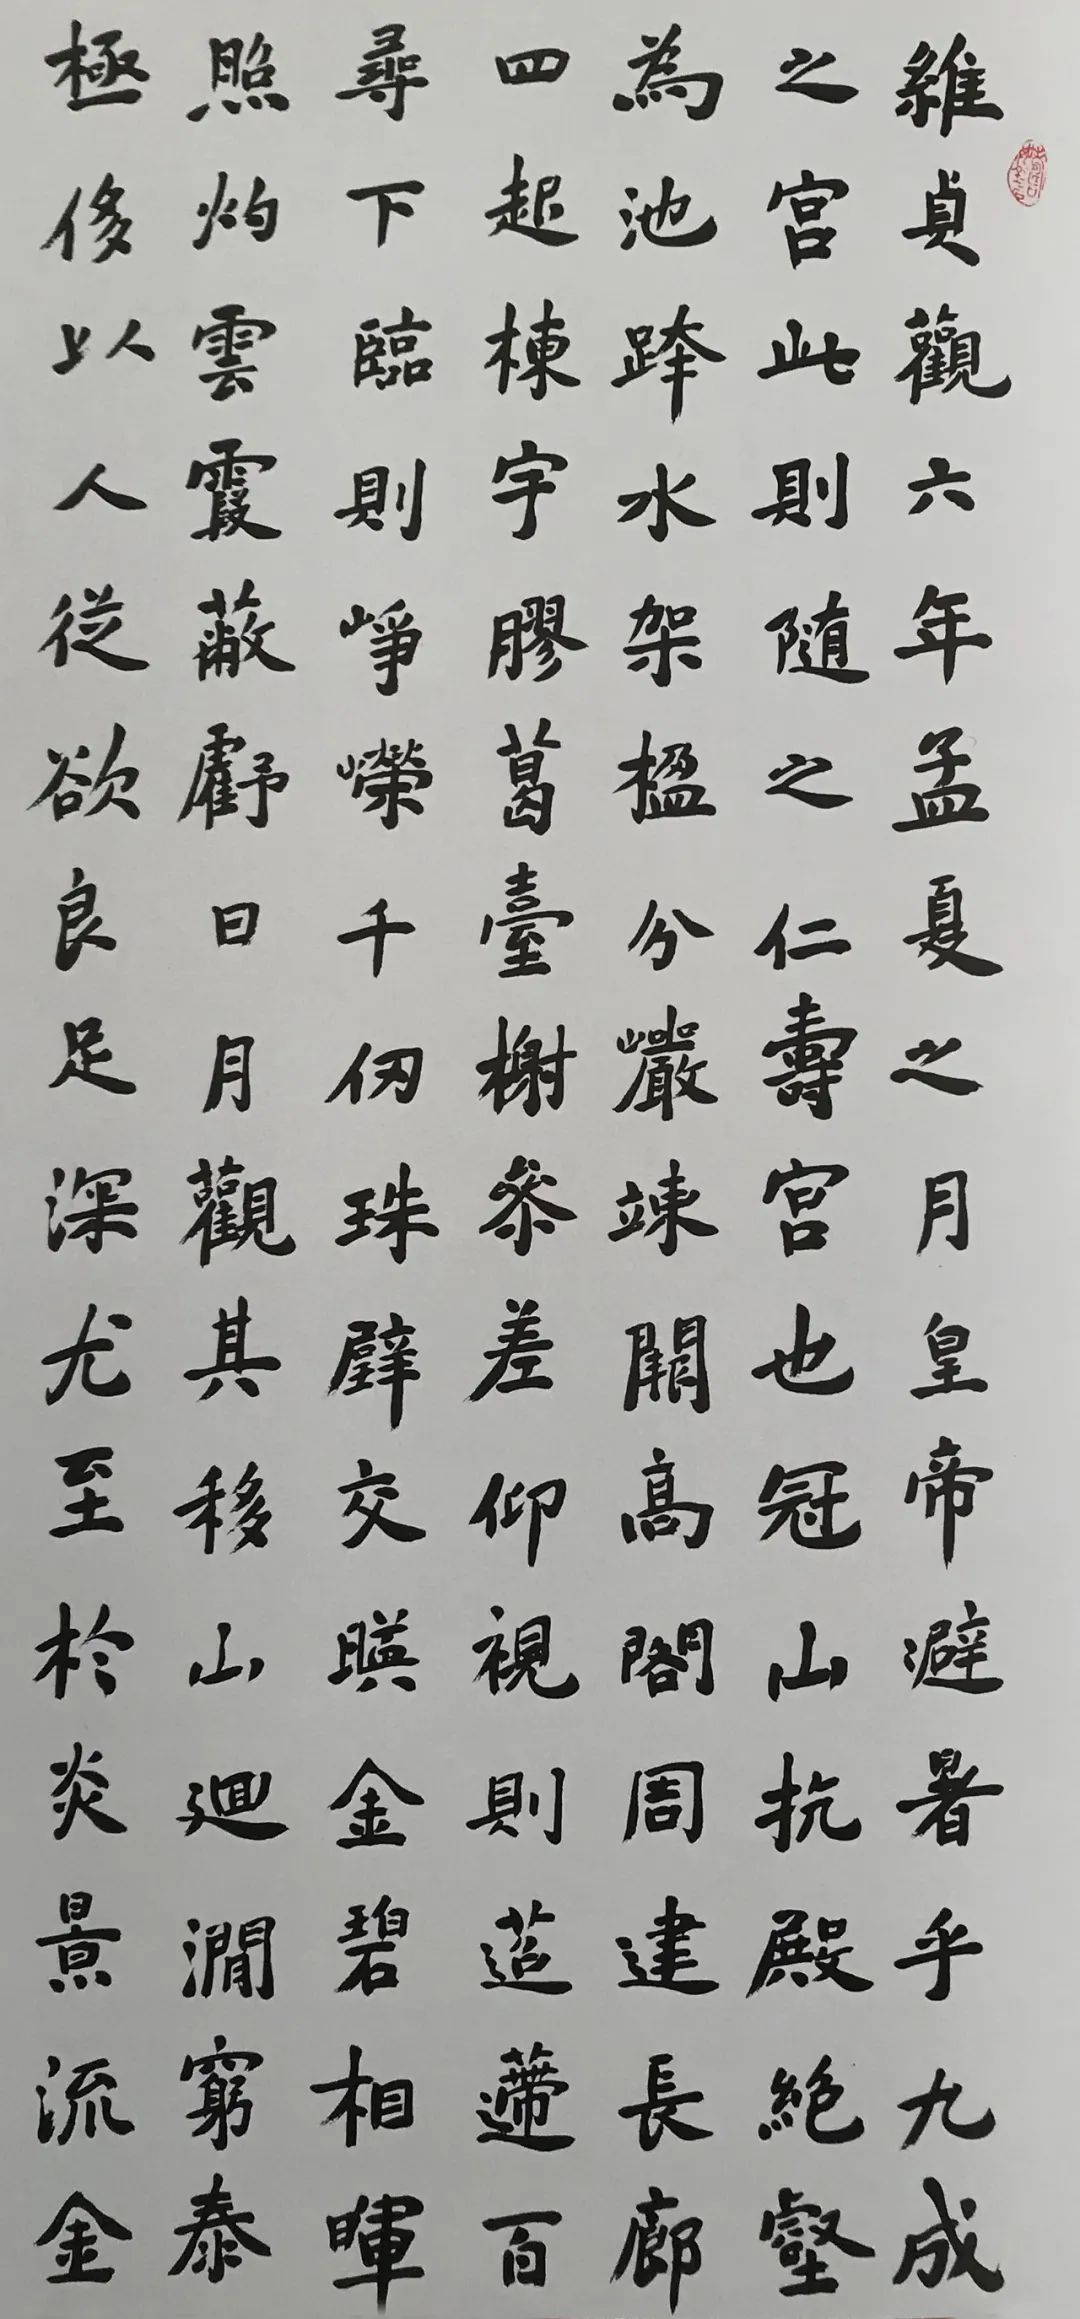 維貞觀六年孟夏之月皇帝避暑乎九成
之宮此則隨之仁壽宮也冠山抗殿絕壑
為池跨水架楹分巖竦闕高閣周建長廊
四起棟宇膠葛臺榭參差仰視則迢遰百
尋下臨則崢嶸千仞珠璧交暎金碧相暉
照灼雲霞蔽虧日月觀其移山廻澗窮泰
極侈以人從欲良足深尤至於炎景流金